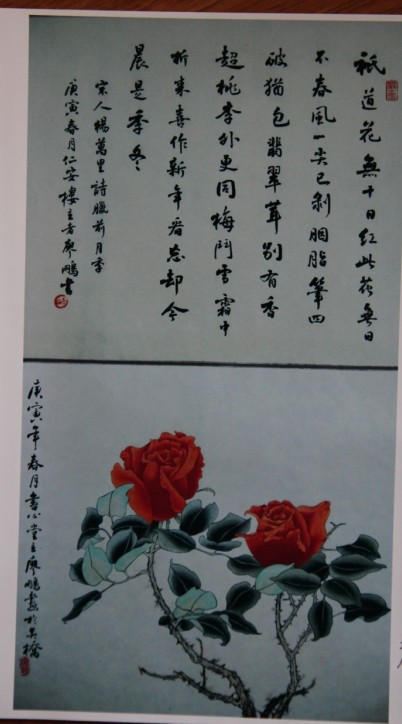 祇道花無十日紅此花無日
不春風一尖已剝胭脂筆四
破猶包翡翠茸别有香
超桃李外更同梅鬥雪霜中
折来喜作新年看忘却今
晨是季冬
宋人楊萬里詩臘前月季
庚寅春月仁安樓主廖鵬書
庚寅年春月書心堂主廖鵬畫於吴橋